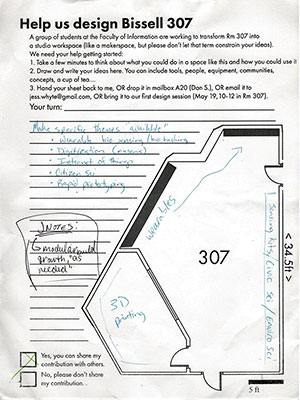 Help us design Bissell 307
A group of students at the Faculty of Information are working to transform Rm 307 into
a studio workspace (like a makerspace, but please don't let that term constrain your ideas).
We need your help getting started:
1. Take a few minutes to think about what you could do in a space like this and how you could use it
2. Draw and write your ideas here. You can include tools, people, equipment, communities,
concepts, a cup of tea....
3. Hand your sheet back to me, OR drop it in mailbox A20 (Dan S.), OR email it to
jess.whyte@gmail.com, OR bring it to our first design session (May 19, 10-12 in Rm 307).
Your turn:
Make specific themes "available"
• Wearable bio sensing/bio hacking
• Digitization (museums)
• Internet of things
• Citizen Sci
• Rapid prototyping
NOTES:
modular build
growth, "as
needed"
wearables
3D
printing
307
Sensing Kits, Civic Sci / Enviro Sci
< 34.5ft >
5 ft
Yes, you can share my
contribution with others.
No, please don't share
my contribution. .